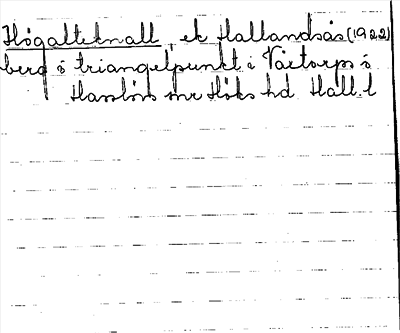 Högalteknall, ek Hallandsås (1922)
berg o triangelpunkt i Vårtorps o
Hasslövs snr Höks hd Hall. l